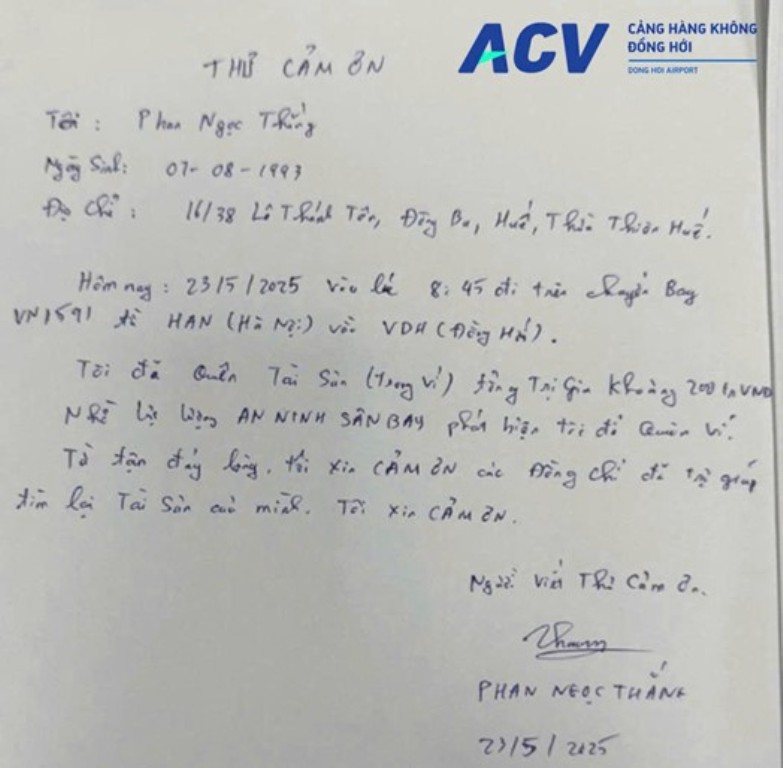 ACV
CẢNG HÀNG KHÔNG
ĐỒNG HỚI
DONG HOI AIRPORT
THƯ CẢM ƠN
Tôi : Phan Ngọc Thắng
Ngày Sinh: 07-08-1993
Địa Chỉ : 16/38 Lê Thánh Tôn, Đông Ba, Huế, Thừa Thiên Huế.
Hôm nay : 23/5/2025 vào lúc 8:45 đi trên chuyến Bay
VN1591 từ HAN (Hà Nội) vào VDH (Đồng Hới).
Tôi đã Quên Tài Sản (trong ví) tổng Trị Giá Khoảng VND
Nhờ lực lượng AN NINH SÂN BAY phát hiện tôi đã Quên Ví.
Từ tận đáy lòng, tôi xin CẢM ƠN các Đồng chí đã trợ giúp
tìm lại Tài Sản của mình. Tôi xin CẢM ƠN.
Người viết Thư Cảm ơn.
PHAN NGỌC THẮNG
23/5/2025